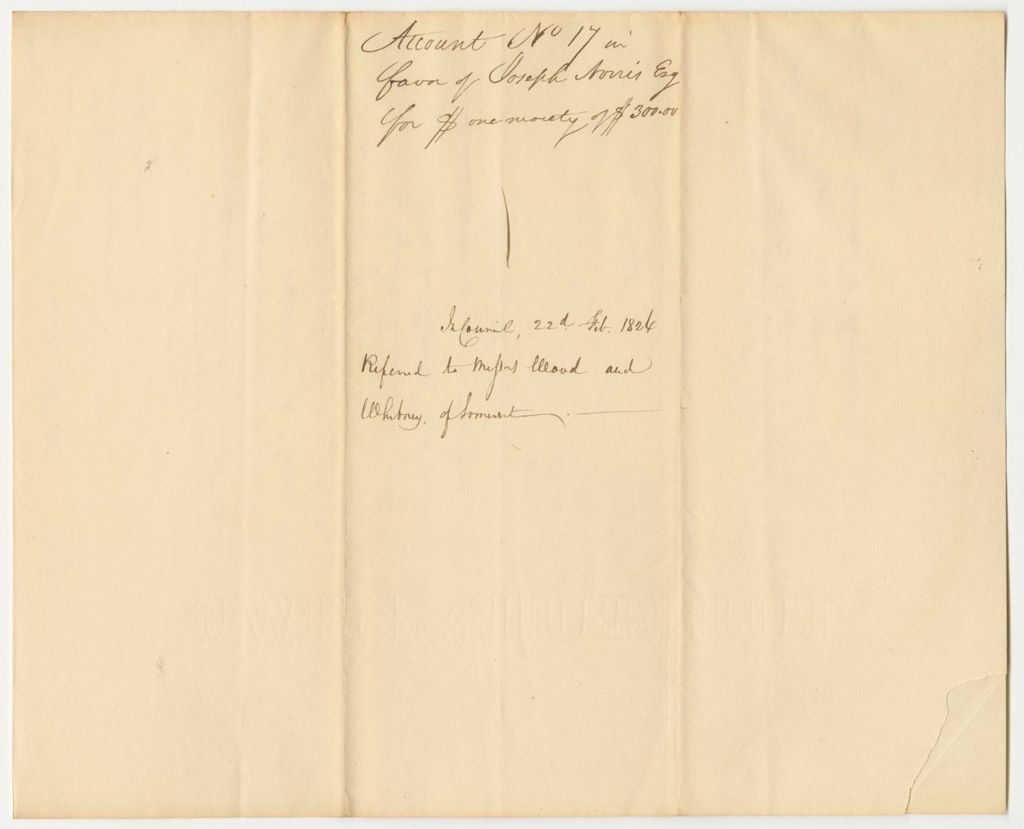 Account No 17 in
favor of Joseph Norris Esq
for $ one moiety of $300.00
In Council, 22d Feb. 1826
Referred to Messrs Wood and
Whitney, of Somerset